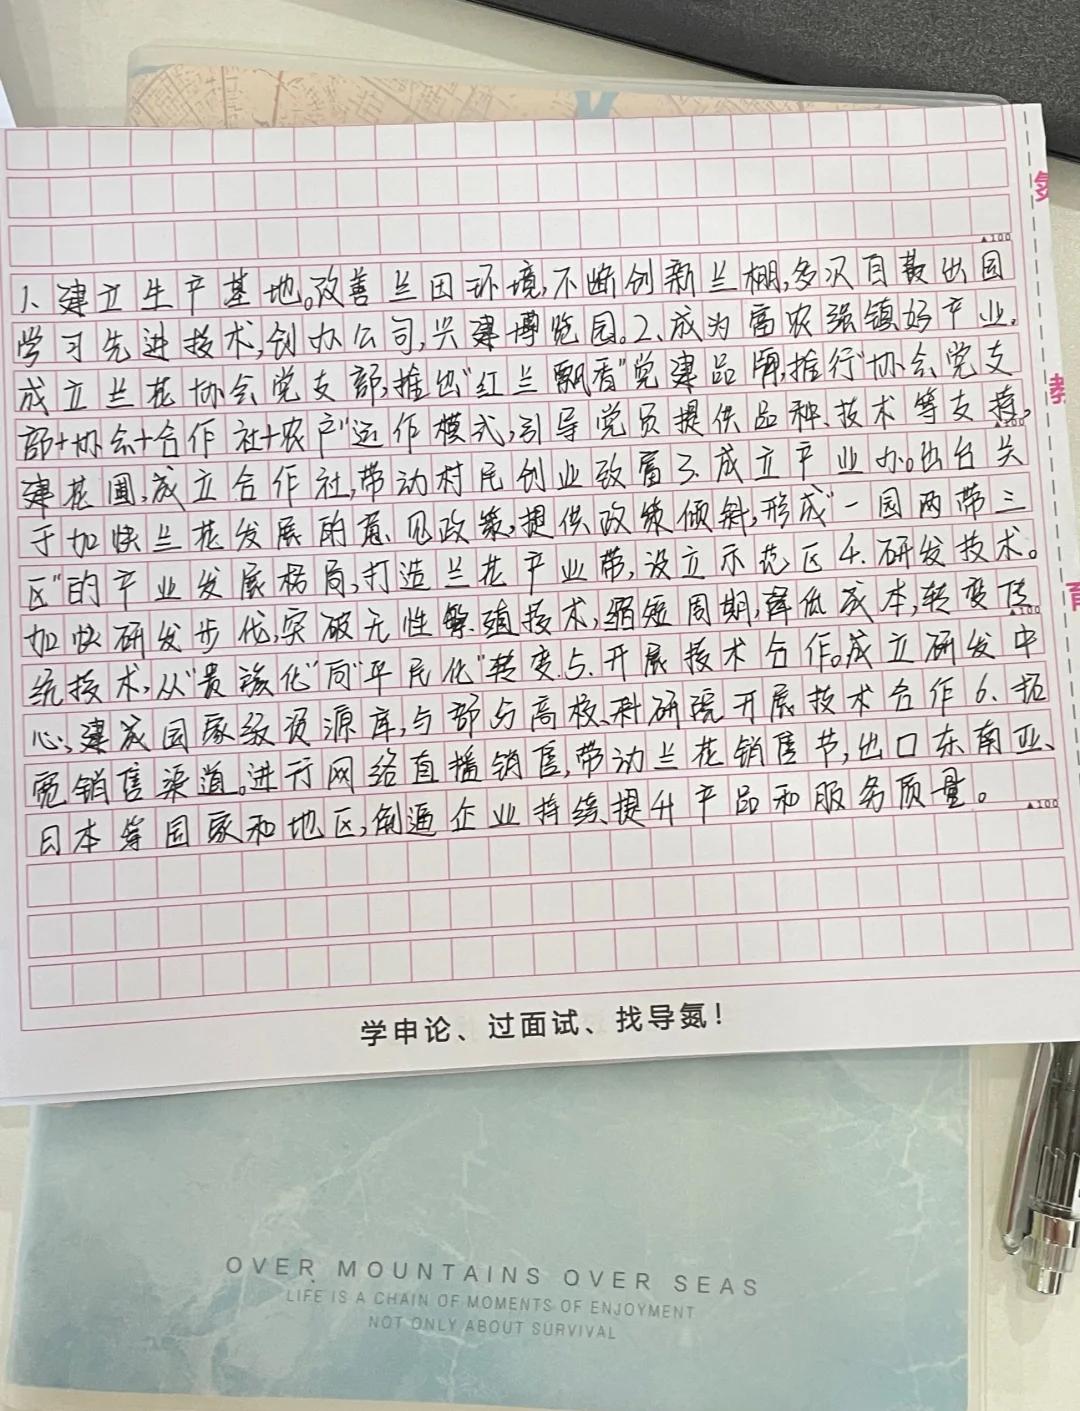 氮
▲100
1、建立生产基地。改善兰田环境,不断创新兰棚,多次自费出国
学习先进技术,创办公司,兴建博览园。2、成为富农强镇好产业.
教
成立兰花协会党支部,推出"红兰飘香"党建品牌,推行"协会党支
部+协会+合作社+农户"运作模式,引导党员提供品种、技术等支持,
▲100
建花圃,成立合作社,带动村民创业致富3.成立产业办。出台关
于加快兰花发展的意见政策,提供政策倾斜,形成"一园两带三
区"的产业发展格局,打造兰花产业带,设立示范区4.研发技术。
育
加快研发步伐,突破无性繁殖技术,缩短周期,降低成本,转变传
▲100
统技术,从"贵族化"向"平民化"转变.5.开展技术合作。成立研发中
心,建成国家级资源库,与部分高校、科研院开展技术合作6、拓
宽销售渠道。进行网络直播销售,带动兰花销售节,出口东南亚、
日本等国家和地区,倒逼企业持续提升产品和服务质量。
▲100
学申论、过面试、找导氮!
OVER MOUNTAINS OVER SEAS
LIFE IS A CHAIN OF MOMENTS OF ENJOYMENT
NOT ONLY ABOUT SURVIVAL